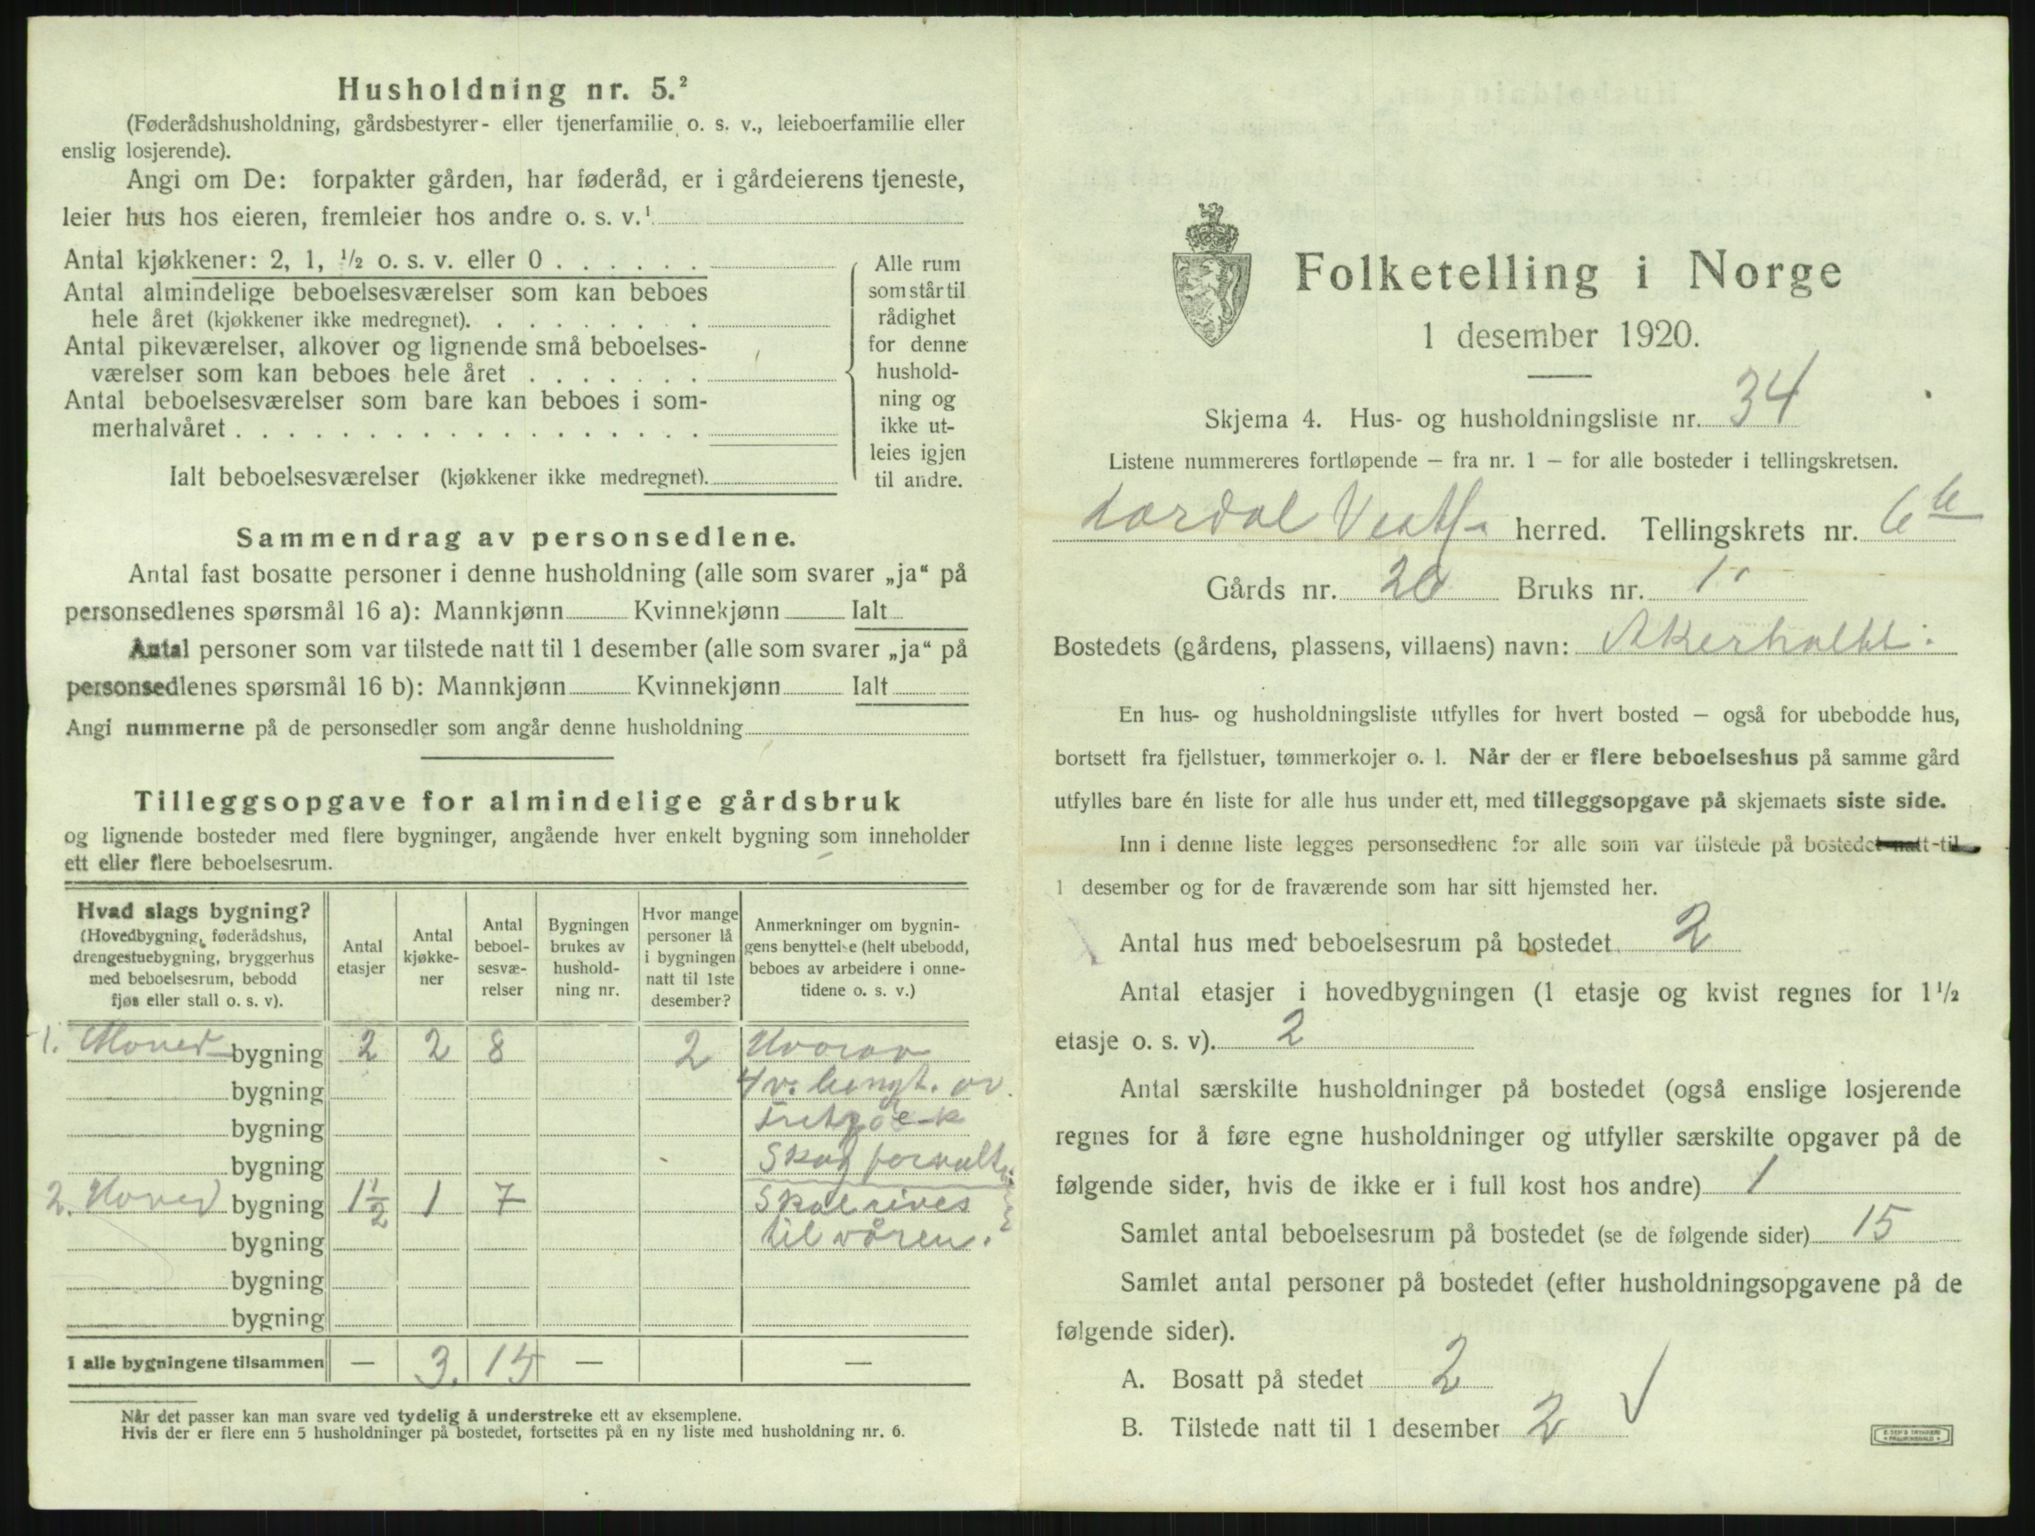 Husholdning nr. 5.²
(Føderådshusholdning, gårdsbestyrer- eller tjenerfamilie o. s. v., leieboerfamilie eller
enslig losjerende).
Angi om De: forpakter gården, har føderåd, er i gårdeierens tjeneste,
leier hus hos eieren, fremleier hos andre o. s. v.¹
Antal kjøkkener: 2, 1, ½ o. s. v. eller 0
Antal almindelige beboelsesværelser som kan beboes
hele året (kjøkkener ikke medregnet).
Antal pikeværelser, alkover og lignende små beboelses-
værelser som kan beboes hele året
Antal beboelsesværelser som bare kan beboes i som-
merhalvåret
Ialt beboelsesværelser (kjøkkener ikke medregnet).
Alle rum
som står til
rådighet
for denne
hushold-
ning og
ikke ut-
leies igjen
til andre.
Sammendrag av personsedlene.
Antal fast bosatte personer i denne husholdning (alle som svarer „ja“ på
personsedlenes spørsmål 16 a): Mannkjønn Kvinnekjønn Ialt
Antal personer som var tilstede natt til 1 desember (alle som svarer „ja“ på
personsedlenes spørsmål 16 b): Mannkjønn Kvinnekjønn Ialt
Angi nummerne på de personsedler som angår denne husholdning
Tilleggsopgave for almindelige gårdsbruk
og lignende bosteder med flere bygninger, angående hver enkelt bygning som inneholder
ett eller flere beboelsesrum.
Hvad slags bygning?
(Hovedbygning, føderådshus,
drengestuebygning, bryggerhus
med beboelsesrum, bebodd
fjøs eller stall o. s. v).
Antal
etasjer
Antal
kjøkke-
ner
Antal
beboel-
sesvæ-
relser
Bygningen
brukes av
hushold-
ning nr.
Hvor mange
personer lå
i bygningen
natt til 1ste
desember?
Anmerkninger om bygnin-
gens benyttelse (helt ubebodd,
beboes av arbeidere i onne-
tidene o. s. v.)
1. Hoved bygning 2 2 8 2 Hvorav
bygning 4 v. benyt. av
bygning Fritzöe
bygning Skog forvalt.
2. Hoved bygning 1½ 1 7 Skal rives
bygning til våren.
bygning
bygning
I alle bygningene tilsammen — 3. 15 — —
Når det passer kan man svare ved tydelig å understreke ett av eksemplene.
Hvis der er flere enn 5 husholdninger på bostedet, fortsettes på en ny liste med husholdning nr. 6.
Folketelling i Norge
1 desember 1920.
Skjema 4. Hus- og husholdningsliste nr. 34
Listene nummereres fortløpende — fra nr. 1 — for alle bosteder i tellingskretsen.
Lardal Vestf. herred. Tellingskrets nr. 6 b
Gårds nr. 20 Bruks nr. 1
Bostedets (gårdens, plassens, villaens) navn: Akerholt
En hus- og husholdningsliste utfylles for hvert bosted — også for ubebodde hus,
bortsett fra fjellstuer, tømmerkojer o. l. Når der er flere beboelseshus på samme gård
utfylles bare én liste for alle hus under ett, med tilleggsopgave på skjemaets siste side.
Inn i denne liste legges personsedlene for alle som var tilstede på bostedet natt til
1 desember og for de fraværende som har sitt hjemsted her.
Antal hus med beboelsesrum på bostedet 2
Antal etasjer i hovedbygningen (1 etasje og kvist regnes for 1½
etasje o. s. v). 2
Antal særskilte husholdninger på bostedet (også enslige losjerende
regnes for å føre egne husholdninger og utfyller særskilte opgaver på de
følgende sider, hvis de ikke er i full kost hos andre) 1
Samlet antal beboelsesrum på bostedet (se de følgende sider) 15
Samlet antal personer på bostedet (efter husholdningsopgavene på de
følgende sider).
A. Bosatt på stedet 2
B. Tilstede natt til 1 desember 2